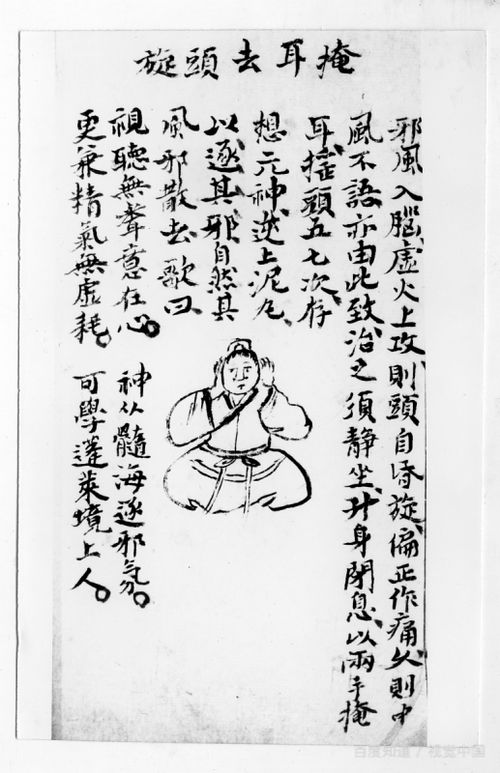 掩耳去頭旋
邪風入腦虛火上攻則頭自昏旋偏正作痛久則中
風不語亦由此致治之須靜坐升身閉息以兩手掩
耳揺頭五七次存
想元神逆上泥丸
以逐其邪自然其
風邪散去歌曰
視聽無聲意在心 神從髓海逐邪氛
更兼精氣無虛耗 可學蓬萊境上人
百度知道 / 视觉中国